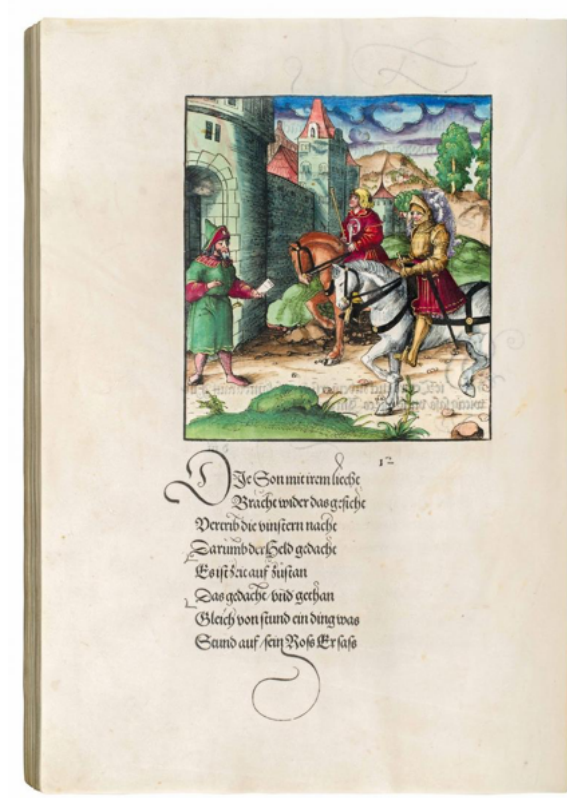 12
DJe Son mit irem liecht
Bracht wider das gesicht
Vertrib die vinstern nacht
Darumb der Held gedacht
Es ist zeit auf zustan
Das gedacht vnd gethan
Gleich von stund ein ding was
Stund auf / sein Ross Er sass